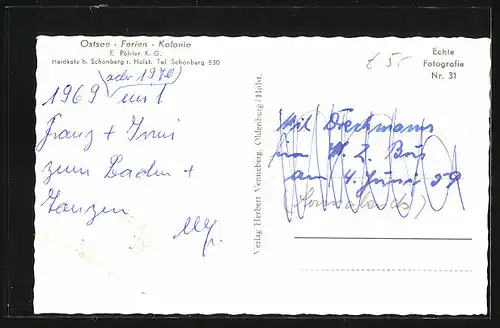 Ostsee - Ferien - Kolonie
E. Pöhler K. G.
Heidkate b. Schönberg i. Holst. Tel. Schönberg 530
(oder 1970)
1969 mit
Franz + Irmi
zum Baden +
Tanzen
Echte
Fotografie
Nr. 31
Verlag Herbert Venneberg, Oldenburg/Holst.
Mit Dieckmanns
im M. Z. Bus
am 4. Juni 59